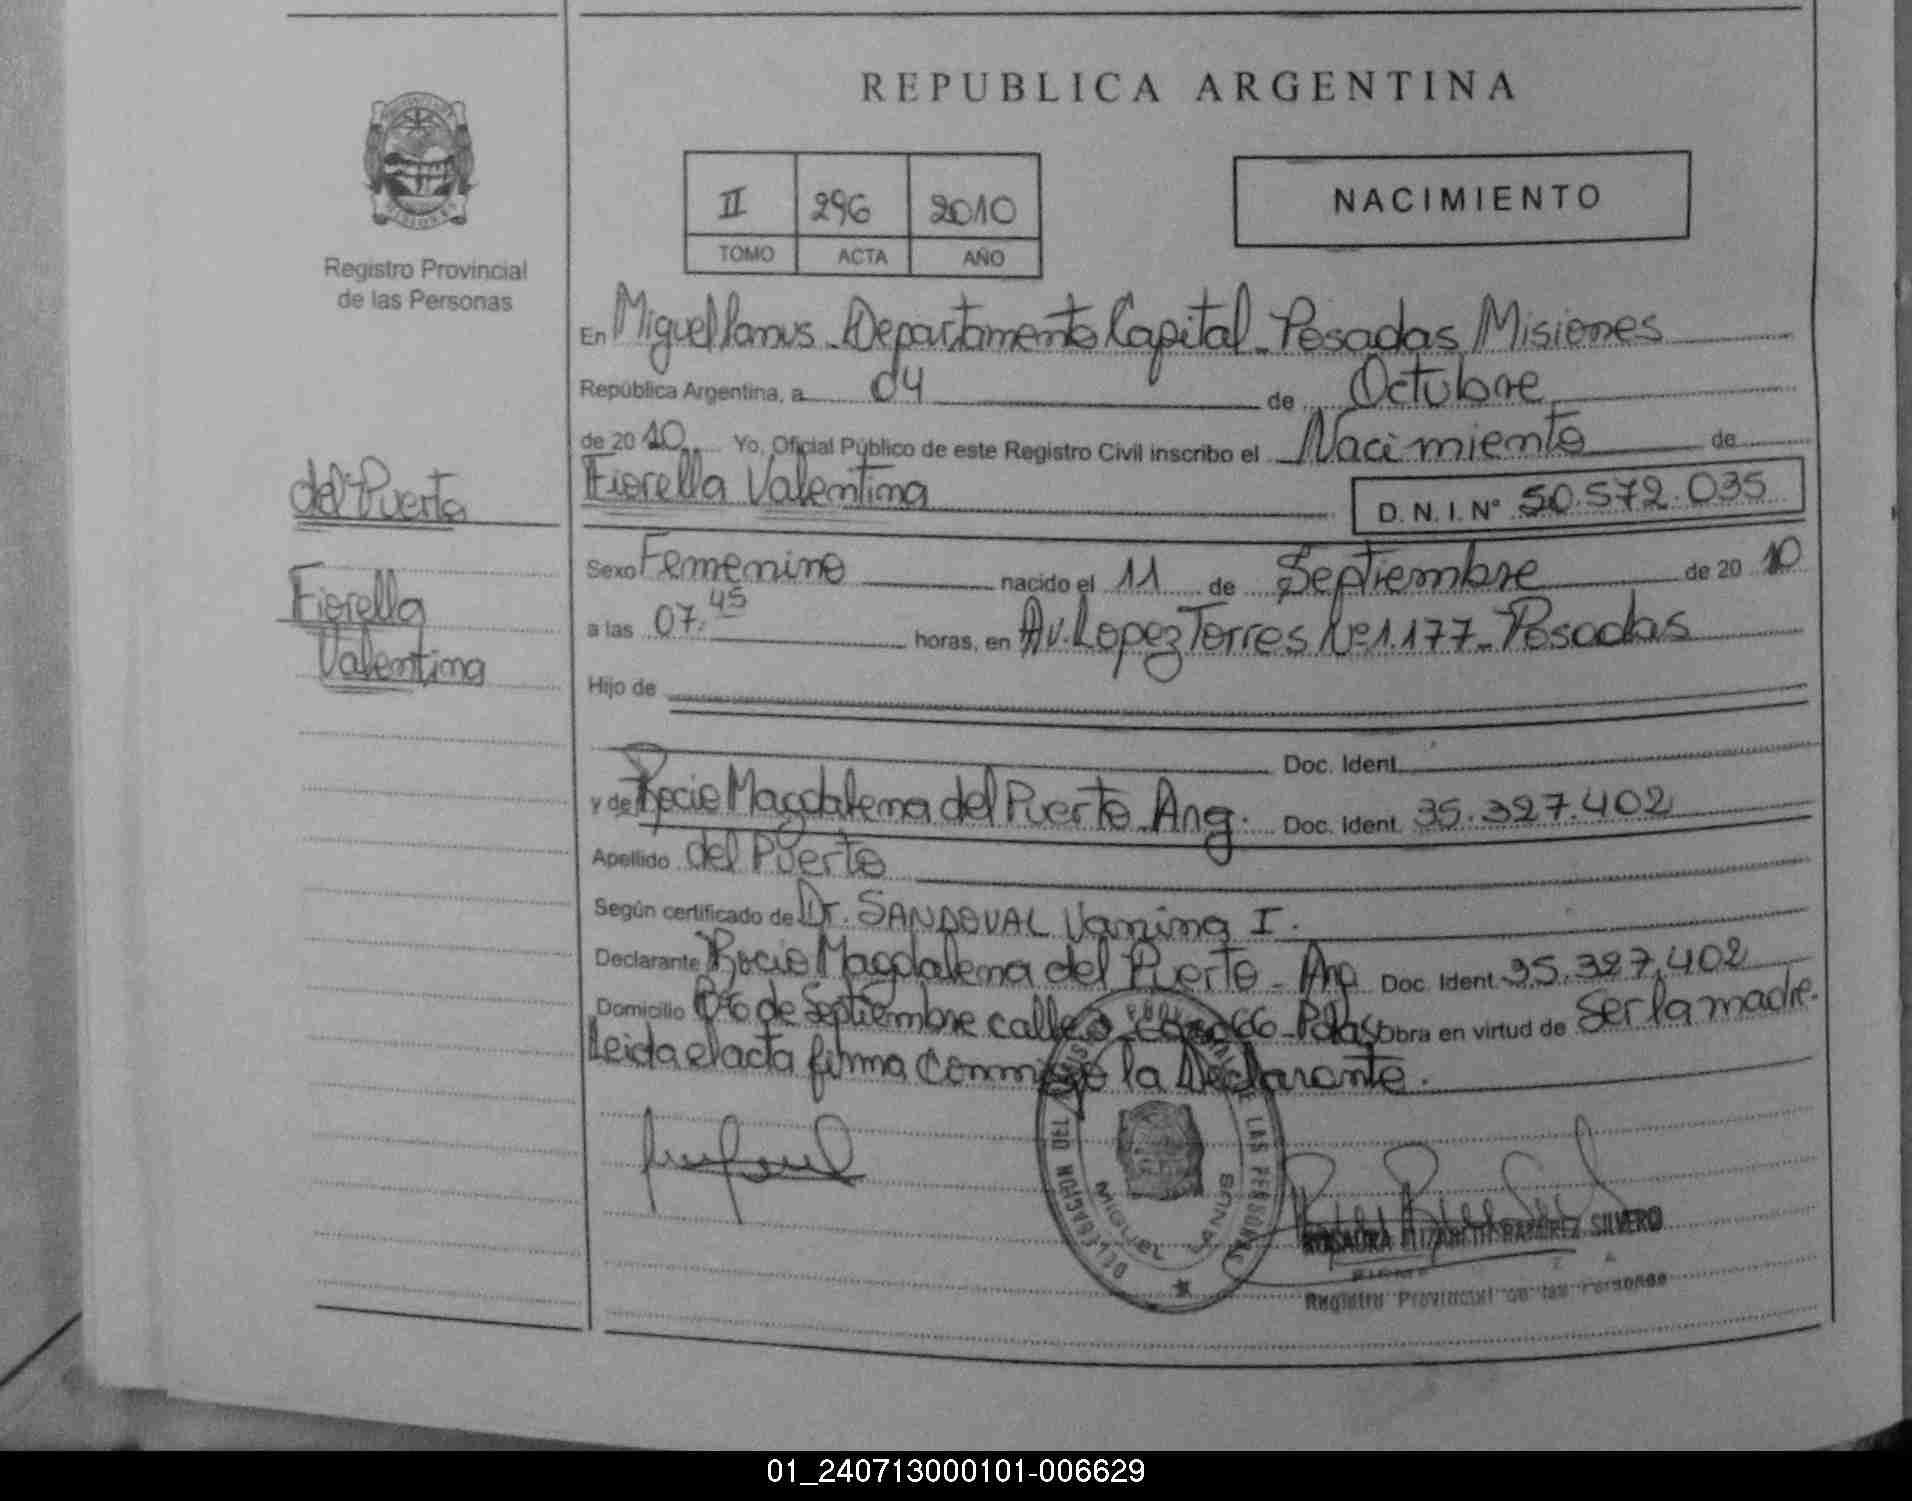 REPUBLICA ARGENTINA
II 296 2010
TOMO ACTA AÑO
NACIMIENTO
Registro Provincial
de las Personas
En Miguel Lanus - Departamento Capital - Posadas Misiones
República Argentina, a 04 de Octubre
de 2010 Yo, Oficial Público de este Registro Civil inscribo el Nacimiento de
Fiorella Valentina D. N. I. N° 50.572.035
del Puerto
Fiorella
Valentina
Sexo Femenino nacido el 11 de Septiembre de 2010
a las 07:45 horas, en Av. Lopez Torres Nº 1.177 - Posadas
Hijo de
Doc. Ident.
y de Rocio Magdalena del Puerto - Arg. Doc. Ident. 35.327.402
Apellido del Puerto
Según certificado de Dr. SANDOVAL Vanina I.
Declarante Rocio Magdalena del Puerto - Arg Doc. Ident. 35.327.402
Domicilio de Septiembre calle Obra en virtud de Ser la madre.
Leida el acta firma Conmigo la Declarante.
DELEGACION DEL DE LAS PERSONAS
MIGUEL LANUS
ROSAURA ELIZABETH RAMIREZ SILVERO
Registro Provincial de las Personas
01_240713000101-006629